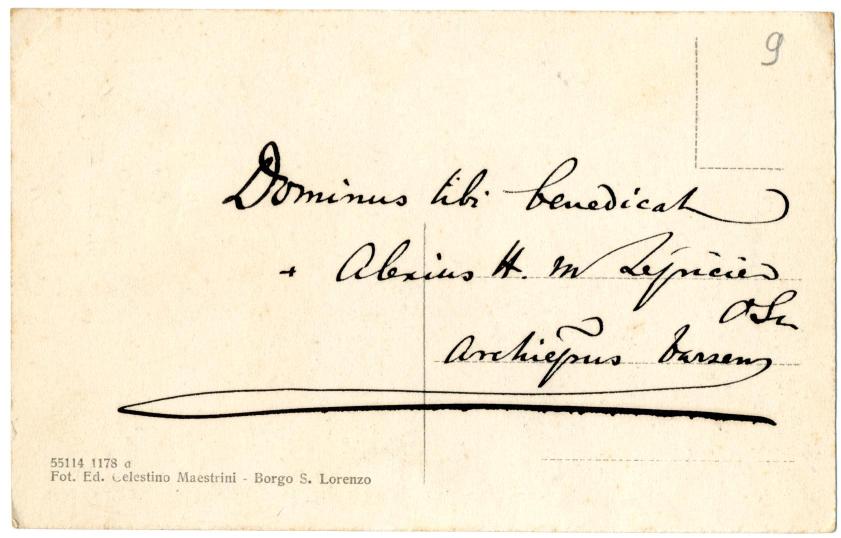 9
Dominus tibi benedicat
+ Alexius H. M Lépicier
OSM
Archiepus Tarsens
55114 1178 a
Fot. Ed. Celestino Maestrini - Borgo S. Lorenzo